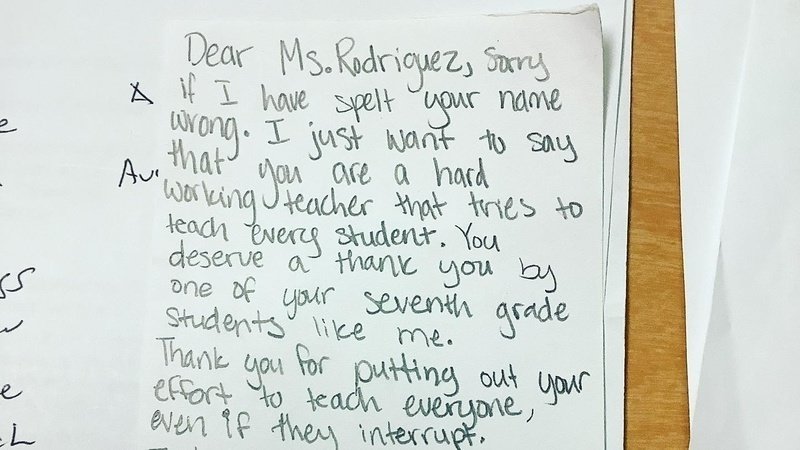 Dear Ms. Rodriguez, Sorry
if I have spelt your name
wrong. I just want to say
that you are a hard
working teacher that tries to
teach every student. You
deserve a thank you by
one of your seventh grade
students like me.
Thank you for putting out your
effort to teach everyone,
even if they interrupt.